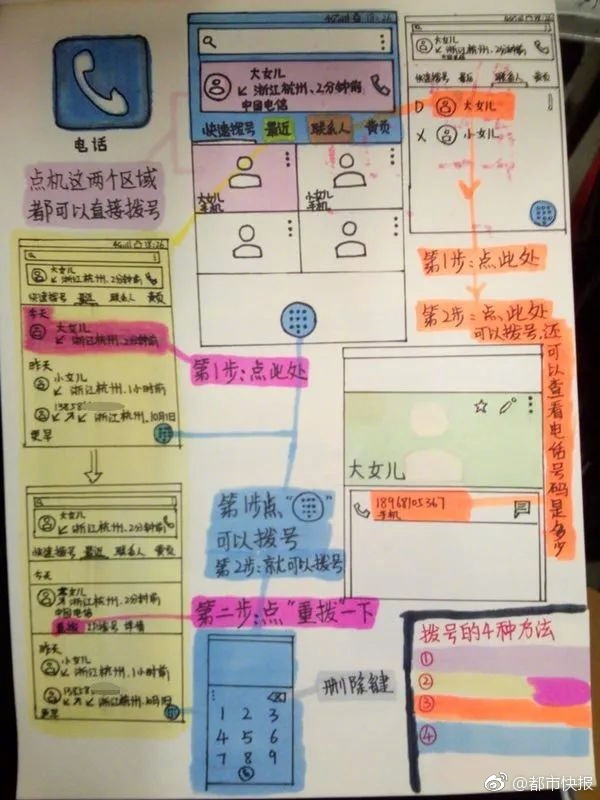 电话
点机这两个区域
都可以直接拨号
4G 18:26
大女儿
↙ 浙江杭州、2分钟前
中国电信
快速拨号 最近 联系人 黄页
大女儿
手机
小女儿
手机
大女儿
↙ 浙江杭州、2分钟前
快速拨号 最近 联系人 黄页
D 大女儿
X 小女儿
第1步:点此处
第2步:点此处
可以拨号,还
可以查看电话号码是多少
18:26
大女儿
↙ 浙江杭州、2分钟前
快速拨号 最近 联系人 黄页
今天
大女儿
↙ 浙江杭州、2分钟前
昨天
小女儿
↙ 浙江杭州、1小时前
13858
↙ ↗ ↙ 浙江杭州、10月1日
更早
第1步:点此处
大女儿
↙ 浙江杭州、2分钟前
快速拨号 最近 联系人 黄页
今天
大女儿
↗ 浙江杭州、2分钟前
中国电信
重拨 详情
昨天
小女儿
↙ 浙江杭州、1小时前
13858
↙ ↗ ↙ 浙江杭州、10月1日
更早
第1步点“ ”
可以拨号
第2步:就可以拨号
第二步:点“重拨”一下
大女儿
18968105367
手机
删除键
1 2 3
4 5 6
7 8 9
拨号的4种方法
①
②
③
④
@都市快报